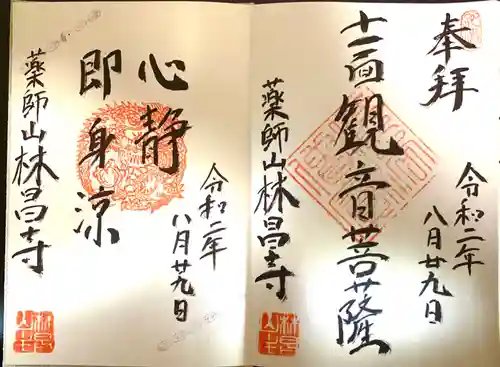 奉拝
令和二年
八月廿九日
十一面観音菩薩
薬師山林昌寺
心静
即身涼
令和二年
八月廿九日
薬師山林昌寺